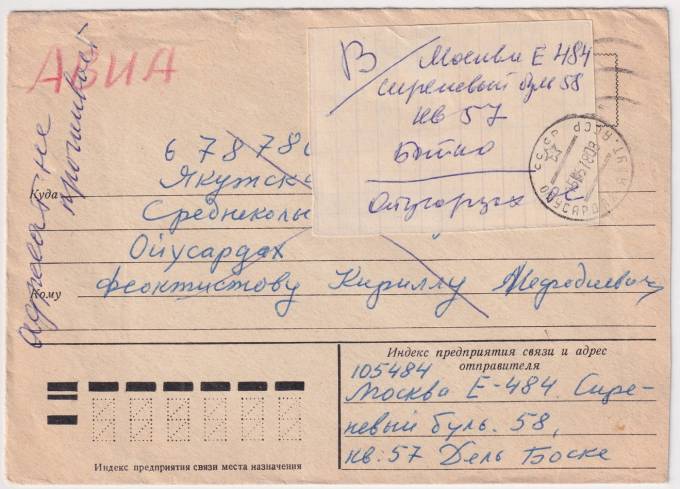 АВИА
адресат не
проживает
В Москви Е 484
Сиреневый буль 58
кв 57
678780
Якужска
Куда
Среднеколы
Ойусардах
Кому Феоктистову Кириллу Мефодиевичу
Индекс предприятия связи и адрес
отправителя
105484
Москва Е-484. Сире-
невый буль. 58,
кв: 57 Дель Боске
Индекс предприятия связи места назначения